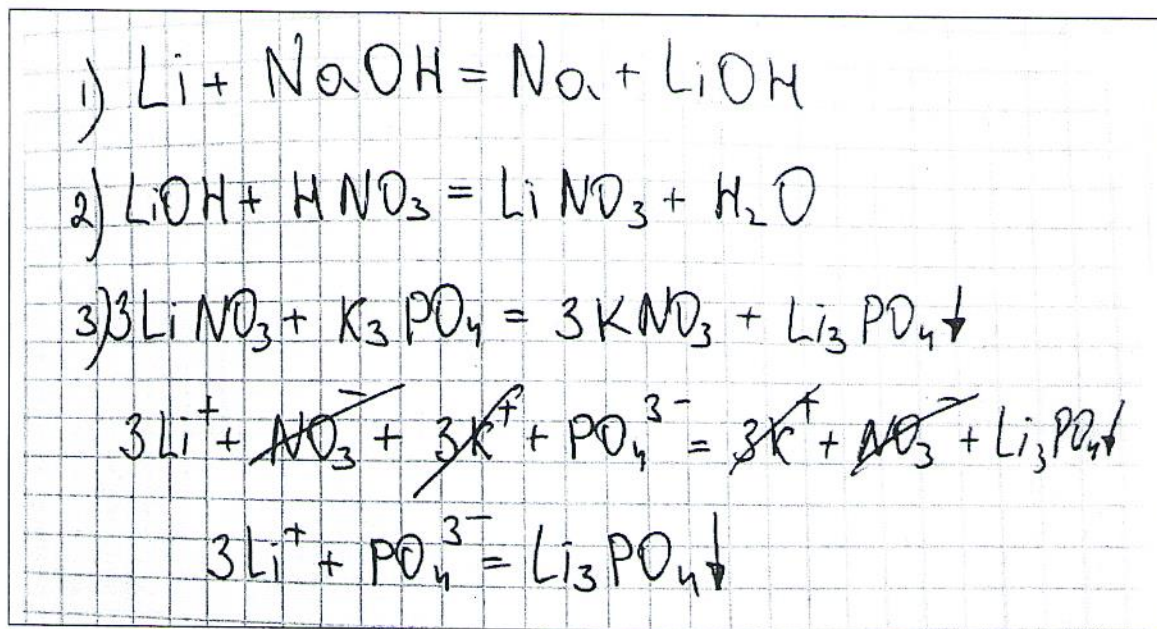 1) Li + NaOH = Na + LiOH
2) LiOH + HNO₃ = LiNO₃ + H₂O
3) 3LiNO₃ + K₃PO₄ = 3KNO₃ + Li₃PO₄↓
3Li⁺ + NO₃⁻ + 3K⁺ + PO₄³⁻ = 3K⁺ + NO₃⁻ + Li₃PO₄↓
3Li⁺ + PO₄³⁻ = Li₃PO₄↓